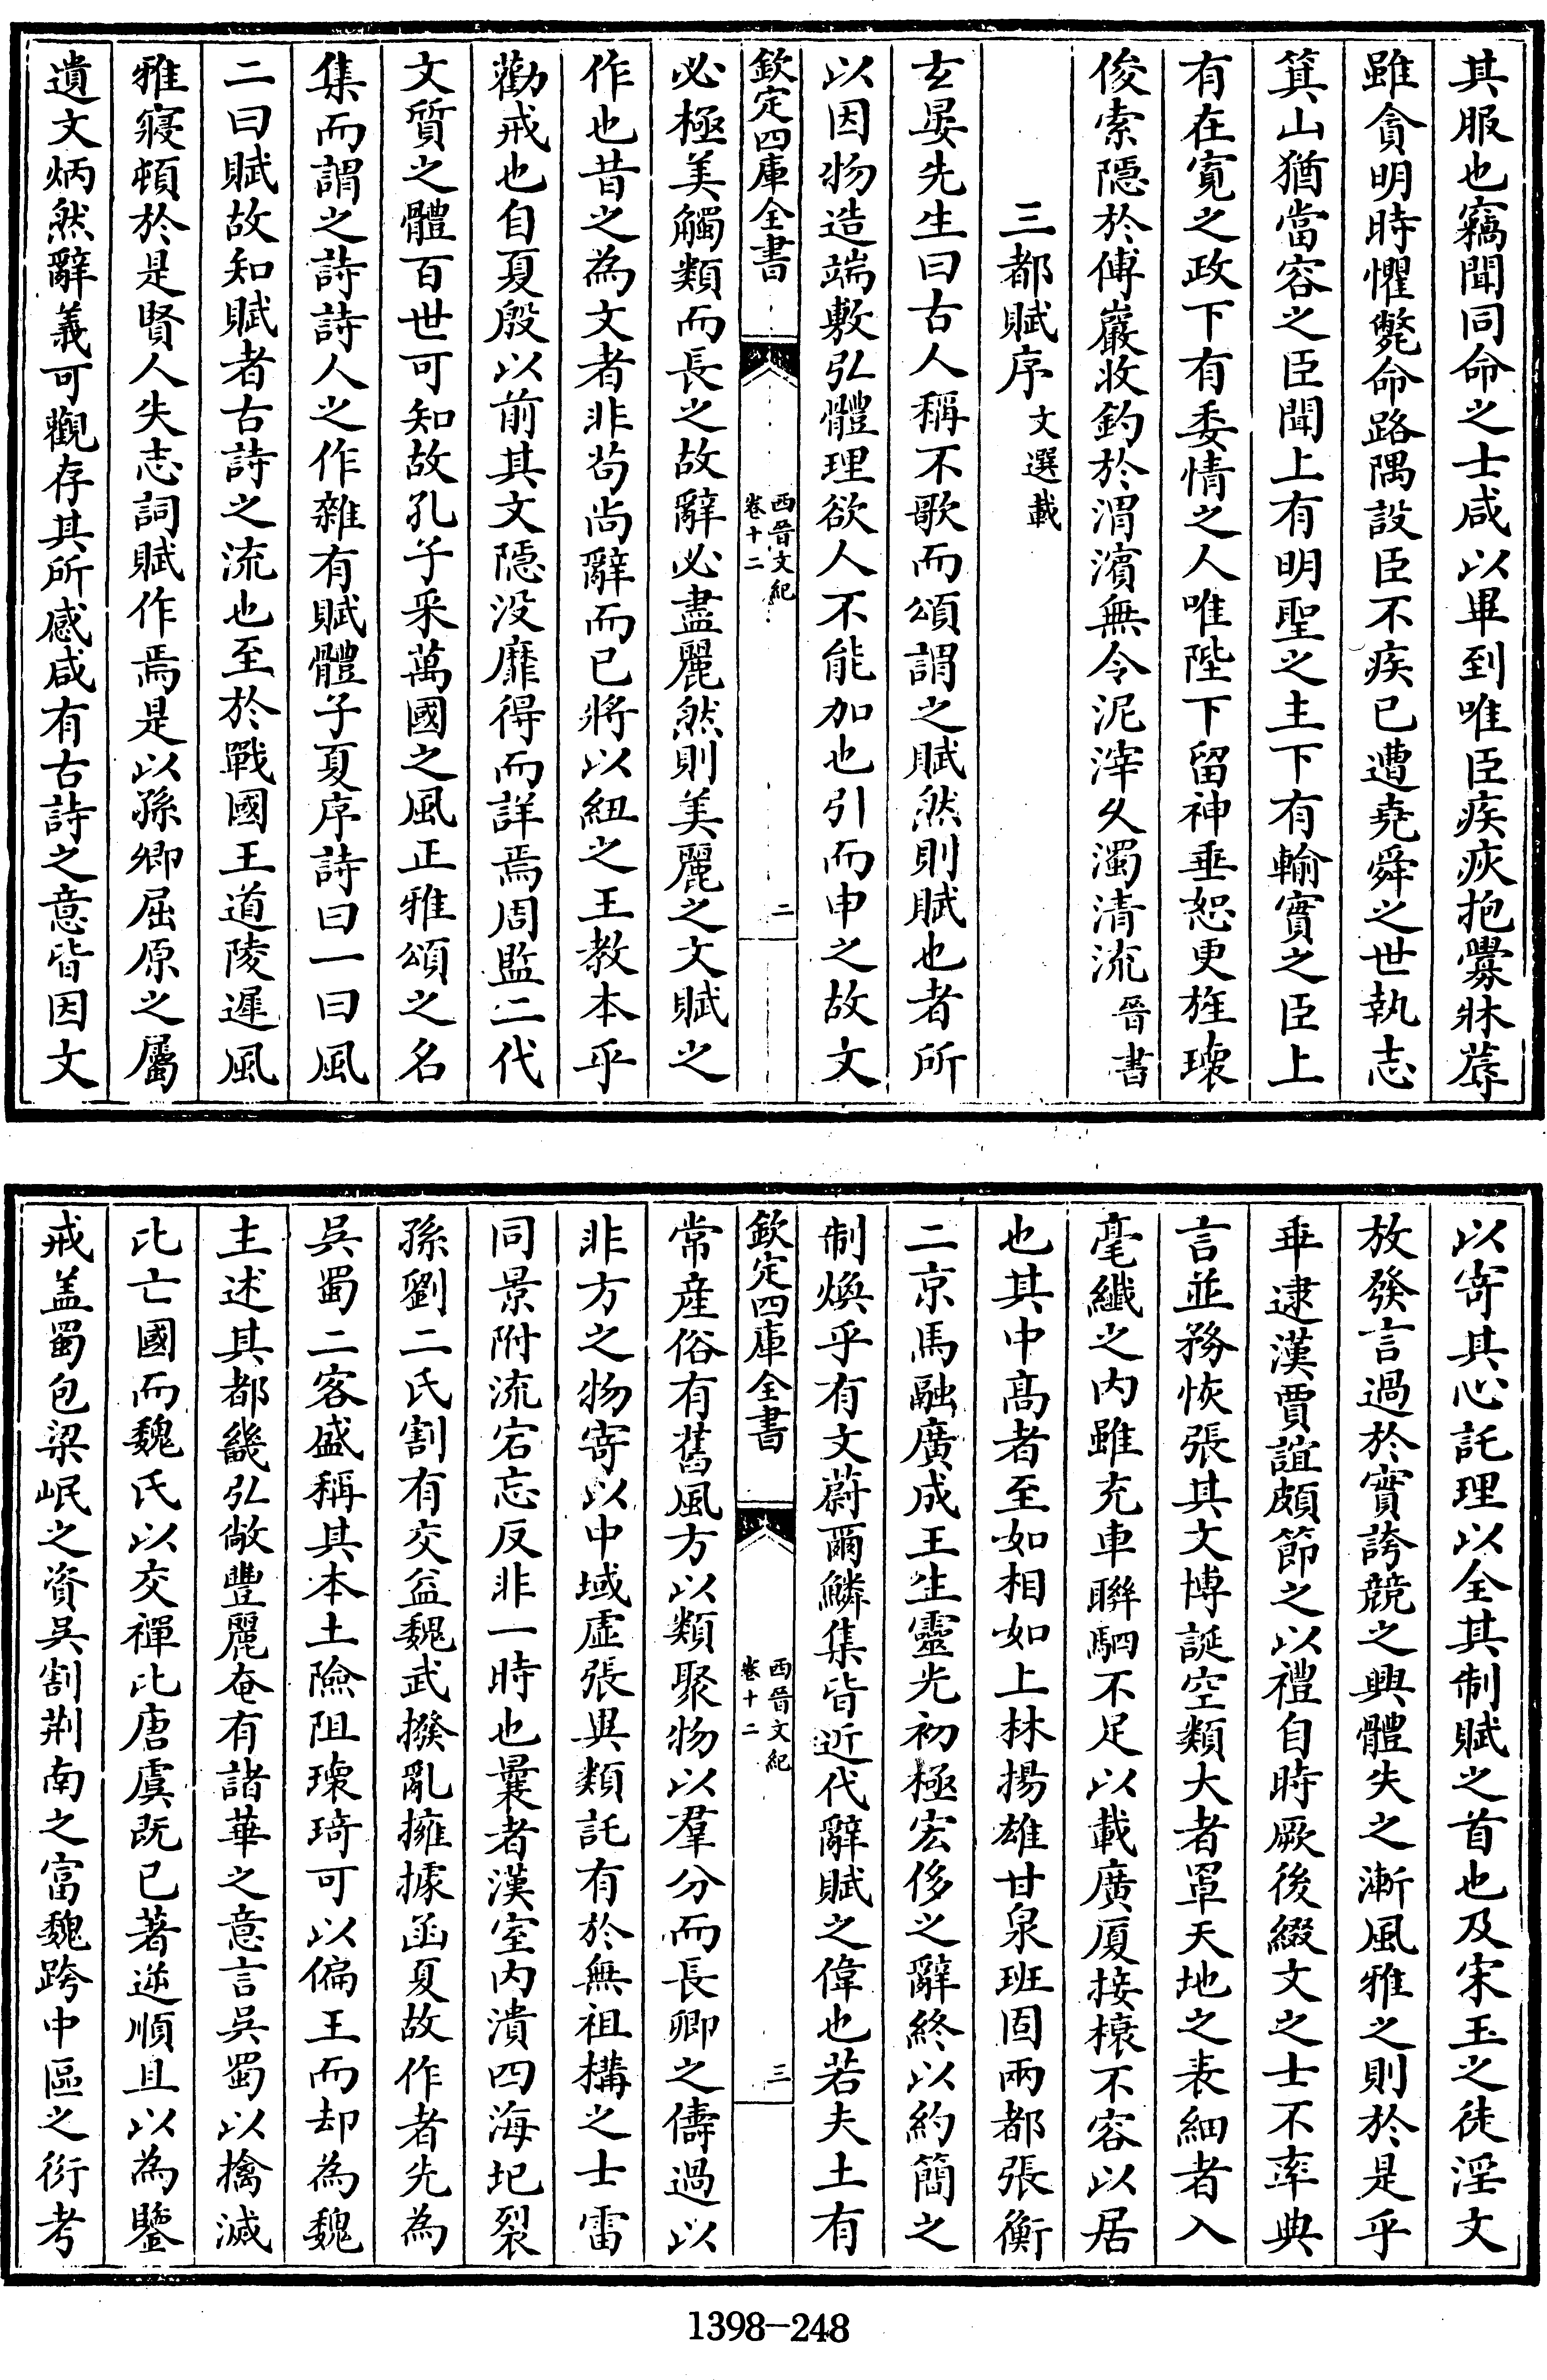 其服也竊聞同命之士咸以畢到唯臣疾疢抱釁牀蓐
雖貪明時懼斃命路隅設臣不疾已遭堯舜之世執志
箕山猶當容之臣聞上有明聖之主下有輸實之臣上
有在寛之政下有委情之人唯陛下留神垂恕更旌瓌
俊索隠於傅巖收釣於渭濱無令泥滓乆濁清流晉書
三都賦序文選載
玄晏先生曰古人稱不歌而頌謂之賦然則賦也者所
以因物造端敷弘體理欲人不能加也引而申之故文
欽定四庫全書
西晉文紀
卷十二
二
必極美觸類而長之故辭必盡麗然則美麗之文賦之
作也昔之為文者非茍尚辭而已將以紐之王教本乎
勸戒也自夏殷以前其文隠没靡得而詳焉周監二代
文質之體百世可知故孔子采萬國之風正雅頌之名
集而謂之詩詩人之作雜有賦體子夏序詩曰一曰風
二曰賦故知賦者古詩之流也至於戰國王道陵遲風
雅寢頓於是賢人失志詞賦作焉是以孫卿屈原之屬
遺文炳然辭義可觀存其所感咸有古詩之意皆因文
以寄其心託理以全其制賦之首也及宋玉之徒淫文
放發言過於實誇競之興體失之漸風雅之則於是乎
乖逮漢賈誼頗節之以禮自時厥後綴文之士不率典
言並務恢張其文博誕空類大者罩天地之表細者入
毫纖之内雖充車聯駟不足以載廣厦接榱不容以居
也其中髙者至如相如上林揚雄甘泉班固兩都張衡
二京馬融廣成王生靈光初極宏侈之辭終以約簡之
制煥乎有文蔚爾鱗集皆近代辭賦之偉也若夫土有
欽定四庫全書
西晉文紀
卷十二
三
常産俗有舊風方以類聚物以羣分而長卿之儔過以
非方之物寄以中域虚張異類託有於無祖構之士雷
同景附流宕忘反非一時也曩者漢室内潰四海圮裂
孫劉二氏割有交益魏武撥亂擁據函夏故作者先為
吳蜀二客盛稱其本土險阻瓌琦可以偏王而却為魏
主述其都畿弘敞豐麗奄有諸華之意言吳蜀以擒滅
比亡國而魏氏以交禪比唐虞既已著逆順且以為鑒
戒盖蜀包梁岷之資吳割荆南之富魏跨中區之衍考
1398-248